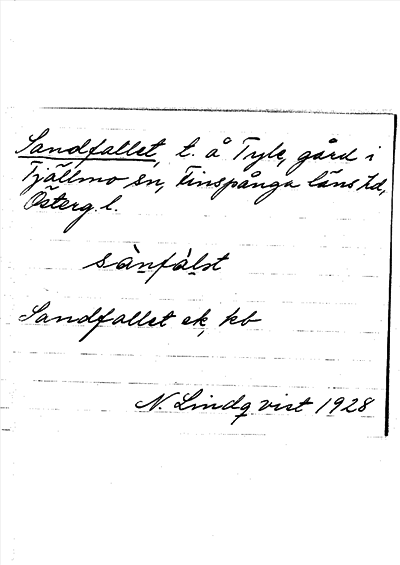 Sandfallet, t. å Tyle, gård i
Tjällmo sn, Finspånga läns hd,
Österg. l.
sànfàlət
Sandfallet ek, kb
N. Lindqvist 1928